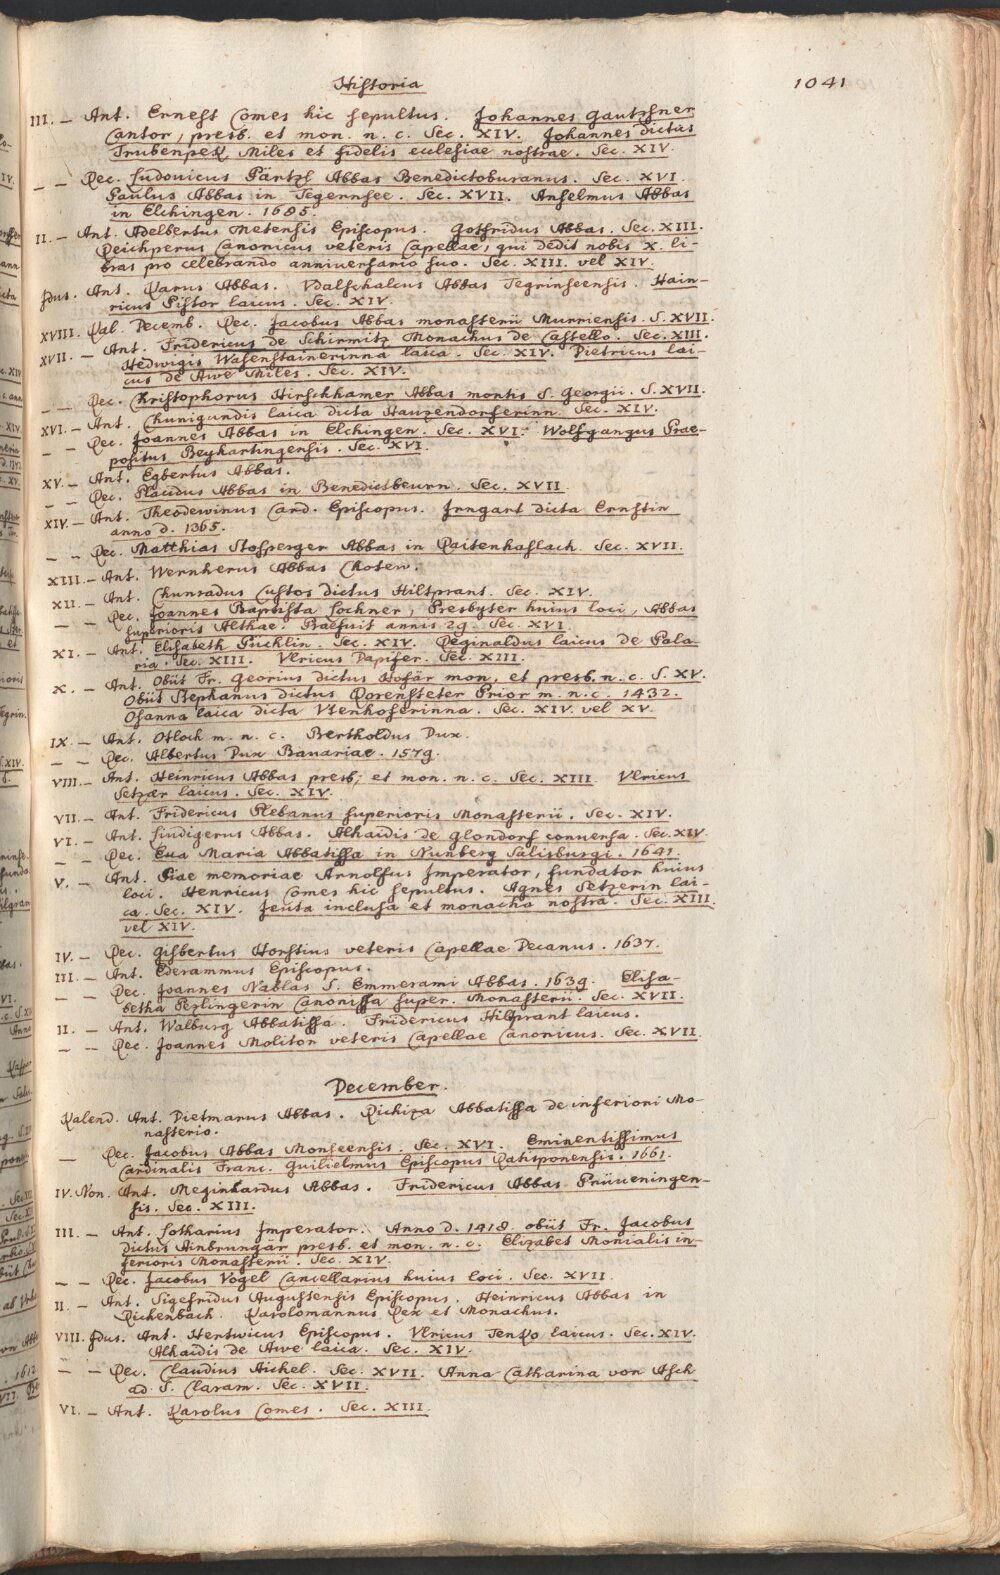 Historia
1041
III. – Ant. Ernest Comes hic sepultus. Johannes Gautzhner
Cantor, presb. et mon. n. c. Sec. XIV. Johannes dictus
Trubenpek Miles et fidelis ecclesiae nostrae. Sec. XIV.
– – Rec. Ludovicus Pärtzl Abbas Benedictoburanus. Sec. XVI.
Paulus Abbas in Tegernsee. Sec. XVII. Anselmus Abbas
in Elchingen. 1685.
II. – Ant. Adelbertus Metensis Episcopus. Gotfridus Abbas. Sec. XIII.
Reichperus Canonicus veteris Capellae, qui dedit nobis X. li-
bras pro celebrando anniversario suo. Sec. XIII. vel XIV.
Idus. Ant. Karus Abbas. Walschalcus Abbas Tegrinseensis. Hain-
ricus Pistor laicus. Sec. XIV.
XVIII. Kal. Decemb. Rec. Jacobus Abbas monasterii Murriensis. S. XVII.
XVII. – Ant. Fridericus de Schirmitz Monachus de Castello. Sec. XIII.
Hedwigis Wasenstainerinna laica. Sec. XIV. Dietricus lai-
cus de Awe Miles. Sec. XIV.
– – Rec. Christophorus Hirschhamer Abbas montis S. Georgii. S. XVII.
XVI. – Ant. Chunigundis laica dicta Hauzendorferinn. Sec. XIV.
– – Rec. Joannes Abbas in Elchingen. Sec. XVI. Wolfgangus Prae-
positus Beyhartingensis. Sec. XVI.
XV. – Ant. Egbertus Abbas.
– – Rec. Placidus Abbas in Benedictbeurn. Sec. XVII.
XIV. – Ant. Theodewinus Card. Episcopus. Irngart dicta Ernstin
anno d. 1365.
– – Rec. Matthias Stosperger Abbas in Raitenhaslach. Sec. XVII.
XIII. – Ant. Wernherus Abbas Choten.
XII. – Ant. Chunradus Custos dictus Hiltprant. Sec. XIV.
– – Rec. Joannes Baptista Lochner, Presbyter huius loci, Abbas
superioris Althae. Praefuit annis 29. Sec. XVI.
XI. – Ant. Elisabeth Pücklin. Sec. XIV. Reginaldus laicus de Pala-
ria. Sec. XIII. Ulricus Dapifer. Sec. XIII.
X. – Ant. Obiit Fr. Georius dictus Hofär mon. et presb. n. c. S. XV.
Obiit Stephanus dictus Rorensteter Prior m. n. c. 1432.
Osanna laica dicta Utenhoferinna. Sec. XIV. vel XV.
IX. – Ant. Otloch m. n. c. Bertholdus Dux.
– – Rec. Albertus Dux Bavariae. 1579.
VIII. – Ant. Heinricus Abbas presb. et mon. n. c. Sec. XIII. Ulricus
Setzär laicus. Sec. XIV.
VII. – Ant. Fridericus Plebanus superioris Monasterii. Sec. XIV.
VI. – Ant. Lindigerus Abbas. Alhaidis de Glondorf conversa. Sec. XIV.
– – Rec. Eva Maria Abbatissa in Nunberg Salisburgi. 1641.
V. – Ant. Piae memoriae Arnolfus Imperator, fundator huius
loci. Henricus Comes hic sepultus. Agnes Setzerin lai-
ca. Sec. XIV. Jeuta inclusa et monacha nostra. Sec. XIII.
vel XIV.
IV. – Rec. Gisbertus Horstius veteris Capellae Decanus. 1637.
III. – Ant. Ederammus Episcopus.
– – Rec. Joannes Nablas S. Emmerami Abbas. 1639. Elisa-
betha Pezlingerin Canonissa super. Monasterii. Sec. XVII.
II. – Ant. Walburg Abbatissa. Fridericus Hiltprant laicus.
– – Rec. Joannes Molitor veteris Capellae Canonicus. Sec. XVII
December.
Kalend. Ant. Dietmarus Abbas. Richiza Abbatissa de inferiori Mo-
nasterio.
– Rec. Jacobus Abbas Monseensis. Sec. XVI. Eminentissimus
Cardinalis Franc. Guilielmus Episcopus Ratisponensis. 1661.
IV. Non. Ant. Meginhardus Abbas. Fridericus Abbas Prüveningen-
sis. Sec. XIII.
III. – Ant. Lotharius Imperator. Anno d. 1418. obiit Fr. Jacobus
dictus Ainbrungär presb. et mon. n. c. Elizabet Monialis in-
ferioris Monasterii. Sec. XIV.
– – Rec. Jacobus Vogel Cancellarius huius loci. Sec. XVII.
II. – Ant. Sigefridus Augustensis Episcopus. Heinricus Abbas in
Richenbach. Karolomannus Rex et Monachus.
VIII. Idus. Ant. Hertwicus Episcopus. Ulricus Tenko laicus. Sec. XIV.
Alhaidis de Awe laica. Sec. XIV.
– – Rec. Claudius Aichel. Sec. XVII. Anna Catharina von Asch
ad S. Claram. Sec. XVII.
VI. – Ant. Karolus Comes. Sec. XIII.